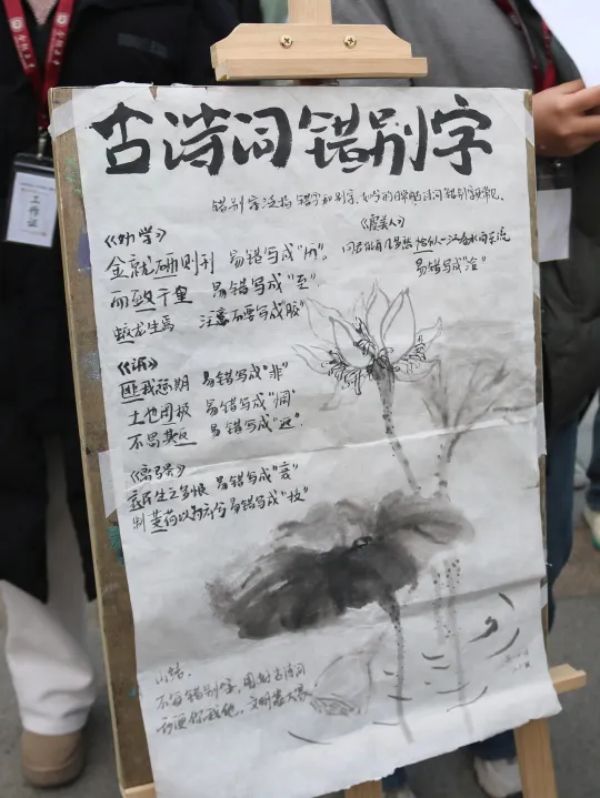 古诗词错别字
错别字泛指错字和别字
《劝学》
金就砺则利 易错写成"历"。
而致千里 易错写成"至"
蛟龙生焉 注意不要写成"胶"
《虞美人》
问君能有几多愁 恰似一江春水向东流
易错写成"洽"
《氓》
匪我愆期 易错写成"非"
士也罔极 易错写成"惘"
不思其反 易错写成"返"
《离骚》
哀民生之多艰 易错写成"衰"
制芰荷以为衣兮易错写成"技"
小结:
不写错别字,用好古诗词
方便你我他,文明靠大家
工作证